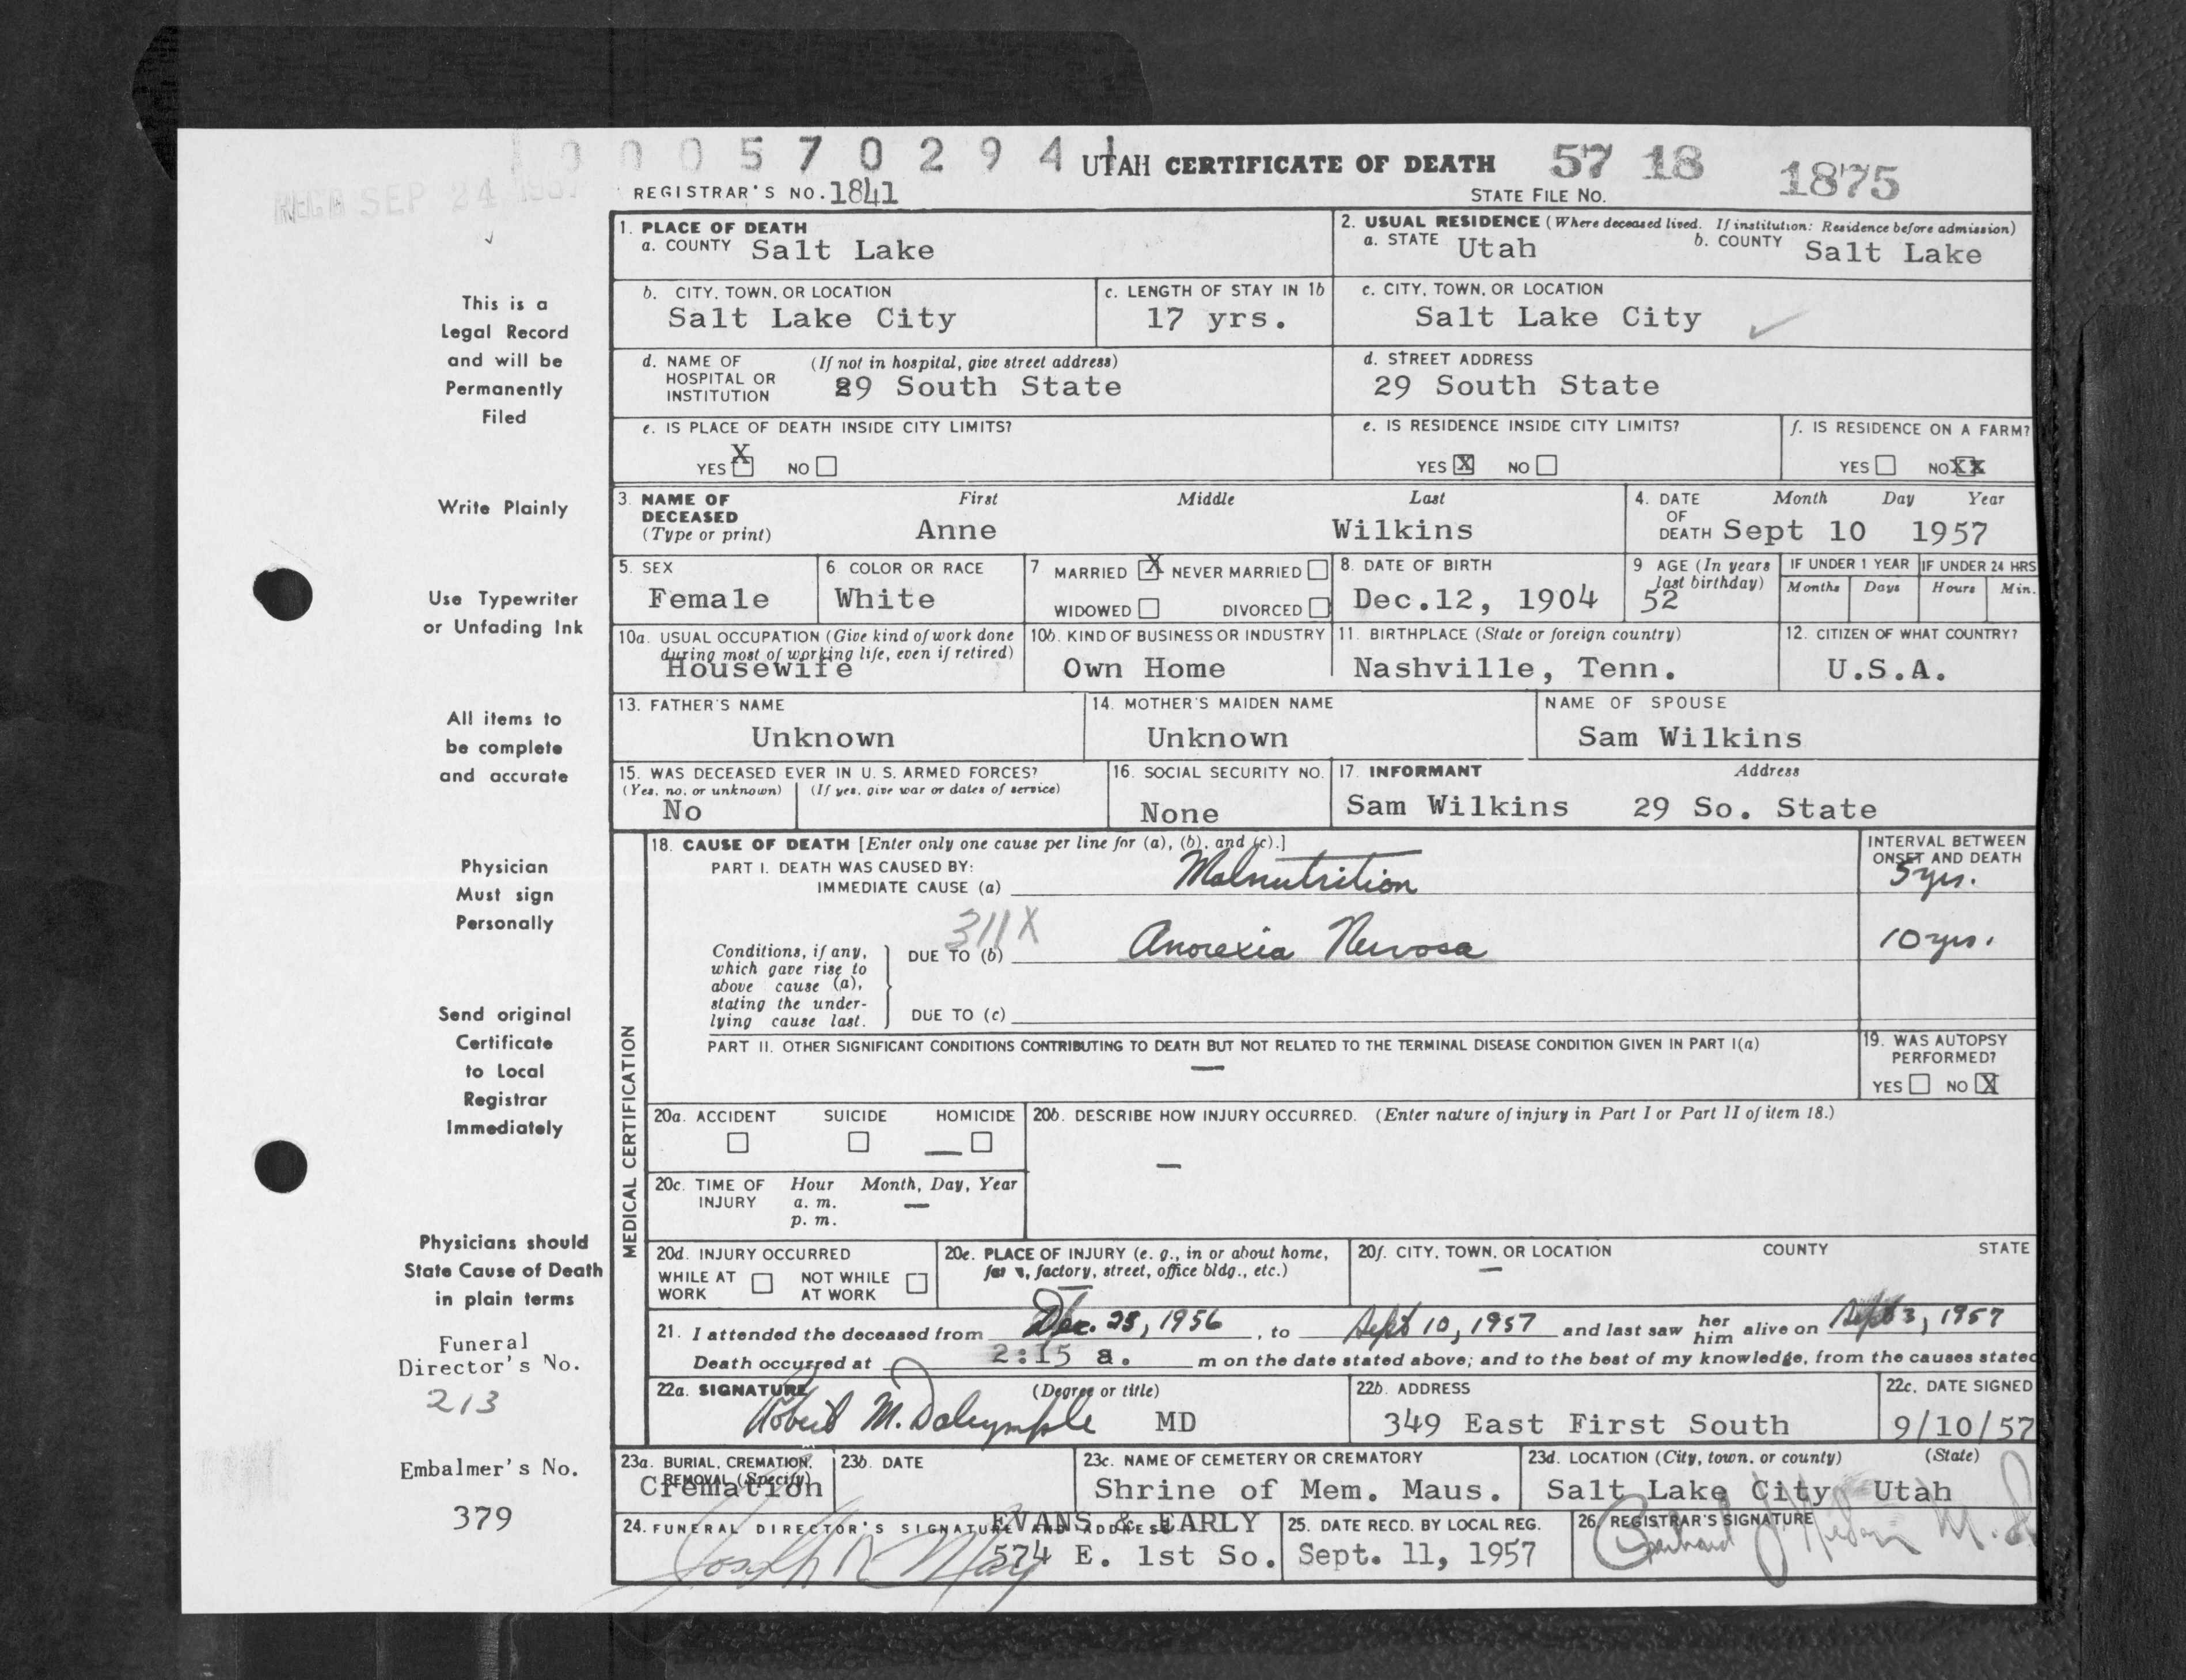 0 0 0 5 7 0 2 9 4 1 UTAH CERTIFICATE OF DEATH 57 18 1875
SEP 24 1957
REGISTRAR'S NO. 1841 STATE FILE NO.
1. PLACE OF DEATH
a. COUNTY Salt Lake
2. USUAL RESIDENCE (Where deceased lived. If institution: Residence before admission)
a. STATE Utah b. COUNTY Salt Lake
b. CITY, TOWN, OR LOCATION
Salt Lake City
c. LENGTH OF STAY IN 1b
17 yrs.
c. CITY, TOWN, OR LOCATION
Salt Lake City
d. NAME OF HOSPITAL OR INSTITUTION (If not in hospital, give street address)
29 South State
d. STREET ADDRESS
29 South State
e. IS PLACE OF DEATH INSIDE CITY LIMITS?
YES X NO
e. IS RESIDENCE INSIDE CITY LIMITS?
YES X NO
f. IS RESIDENCE ON A FARM?
YES NO XX
3. NAME OF DECEASED (Type or print)
First Middle Last
Anne Wilkins
4. DATE OF DEATH Month Day Year
Sept 10 1957
5. SEX
Female
6. COLOR OR RACE
White
7 MARRIED X NEVER MARRIED
WIDOWED DIVORCED
8. DATE OF BIRTH
Dec.12, 1904
9 AGE (In years last birthday)
52
IF UNDER 1 YEAR
Months Days
IF UNDER 24 HRS
Hours Min.
10a. USUAL OCCUPATION (Give kind of work done during most of working life, even if retired)
Housewife
10b. KIND OF BUSINESS OR INDUSTRY
Own Home
11. BIRTHPLACE (State or foreign country)
Nashville, Tenn.
12. CITIZEN OF WHAT COUNTRY?
U.S.A.
13. FATHER'S NAME
Unknown
14. MOTHER'S MAIDEN NAME
Unknown
NAME OF SPOUSE
Sam Wilkins
15. WAS DECEASED EVER IN U. S. ARMED FORCES?
(Yes, no, or unknown) (If yes, give war or dates of service)
No
16. SOCIAL SECURITY NO.
None
17. INFORMANT Address
Sam Wilkins 29 So. State
18. CAUSE OF DEATH [Enter only one cause per line for (a), (b), and (c).]
PART I. DEATH WAS CAUSED BY:
IMMEDIATE CAUSE (a) Malnutrition
INTERVAL BETWEEN ONSET AND DEATH
5 yrs.
311X
Conditions, if any, which gave rise to above cause (a), stating the underlying cause last.
DUE TO (b) Anorexia Nervosa
10 yrs.
DUE TO (c)
PART II. OTHER SIGNIFICANT CONDITIONS CONTRIBUTING TO DEATH BUT NOT RELATED TO THE TERMINAL DISEASE CONDITION GIVEN IN PART I(a)
—
19. WAS AUTOPSY PERFORMED?
YES NO X
20a. ACCIDENT SUICIDE HOMICIDE
—
20b. DESCRIBE HOW INJURY OCCURRED. (Enter nature of injury in Part I or Part II of item 18.)
—
20c. TIME OF INJURY Hour Month, Day, Year
a. m. —
p. m.
20d. INJURY OCCURRED
WHILE AT WORK NOT WHILE AT WORK
20e. PLACE OF INJURY (e. g., in or about home, farm, factory, street, office bldg., etc.)
—
20f. CITY, TOWN, OR LOCATION COUNTY STATE
—
21. I attended the deceased from Dec. 28, 1956, to Sept 10, 1957 and last saw her him alive on Sept 3, 1957
Death occurred at 2:15 a. m on the date stated above; and to the best of my knowledge, from the causes stated
22a. SIGNATURE (Degree or title)
Robert M. Dalrymple MD
22b. ADDRESS
349 East First South
22c. DATE SIGNED
9/10/57
23a. BURIAL, CREMATION, REMOVAL (Specify)
Cremation
23b. DATE
23c. NAME OF CEMETERY OR CREMATORY
Shrine of Mem. Maus.
23d. LOCATION (City, town, or county) (State)
Salt Lake City Utah
24. FUNERAL DIRECTOR'S SIGNATURE AND ADDRESS
EVANS & EARLY
574 E. 1st So.
25. DATE RECD. BY LOCAL REG.
Sept. 11, 1957
26. REGISTRAR'S SIGNATURE
MEDICAL CERTIFICATION
This is a
Legal Record
and will be
Permanently
Filed
Write Plainly
Use Typewriter
or Unfading Ink
All items to
be complete
and accurate
Physician
Must sign
Personally
Send original
Certificate
to Local
Registrar
Immediately
Physicians should
State Cause of Death
in plain terms
Funeral
Director's No.
213
Embalmer's No.
379